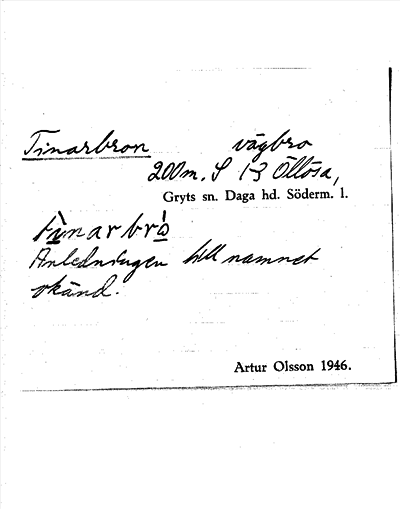 Tinarbron vägbro
200 m. S 13 Öllösa,
Gryts sn. Daga hd. Söderm. l.
tìnarbrò
Anledningen till namnet
okänd.
Artur Olsson 1946.